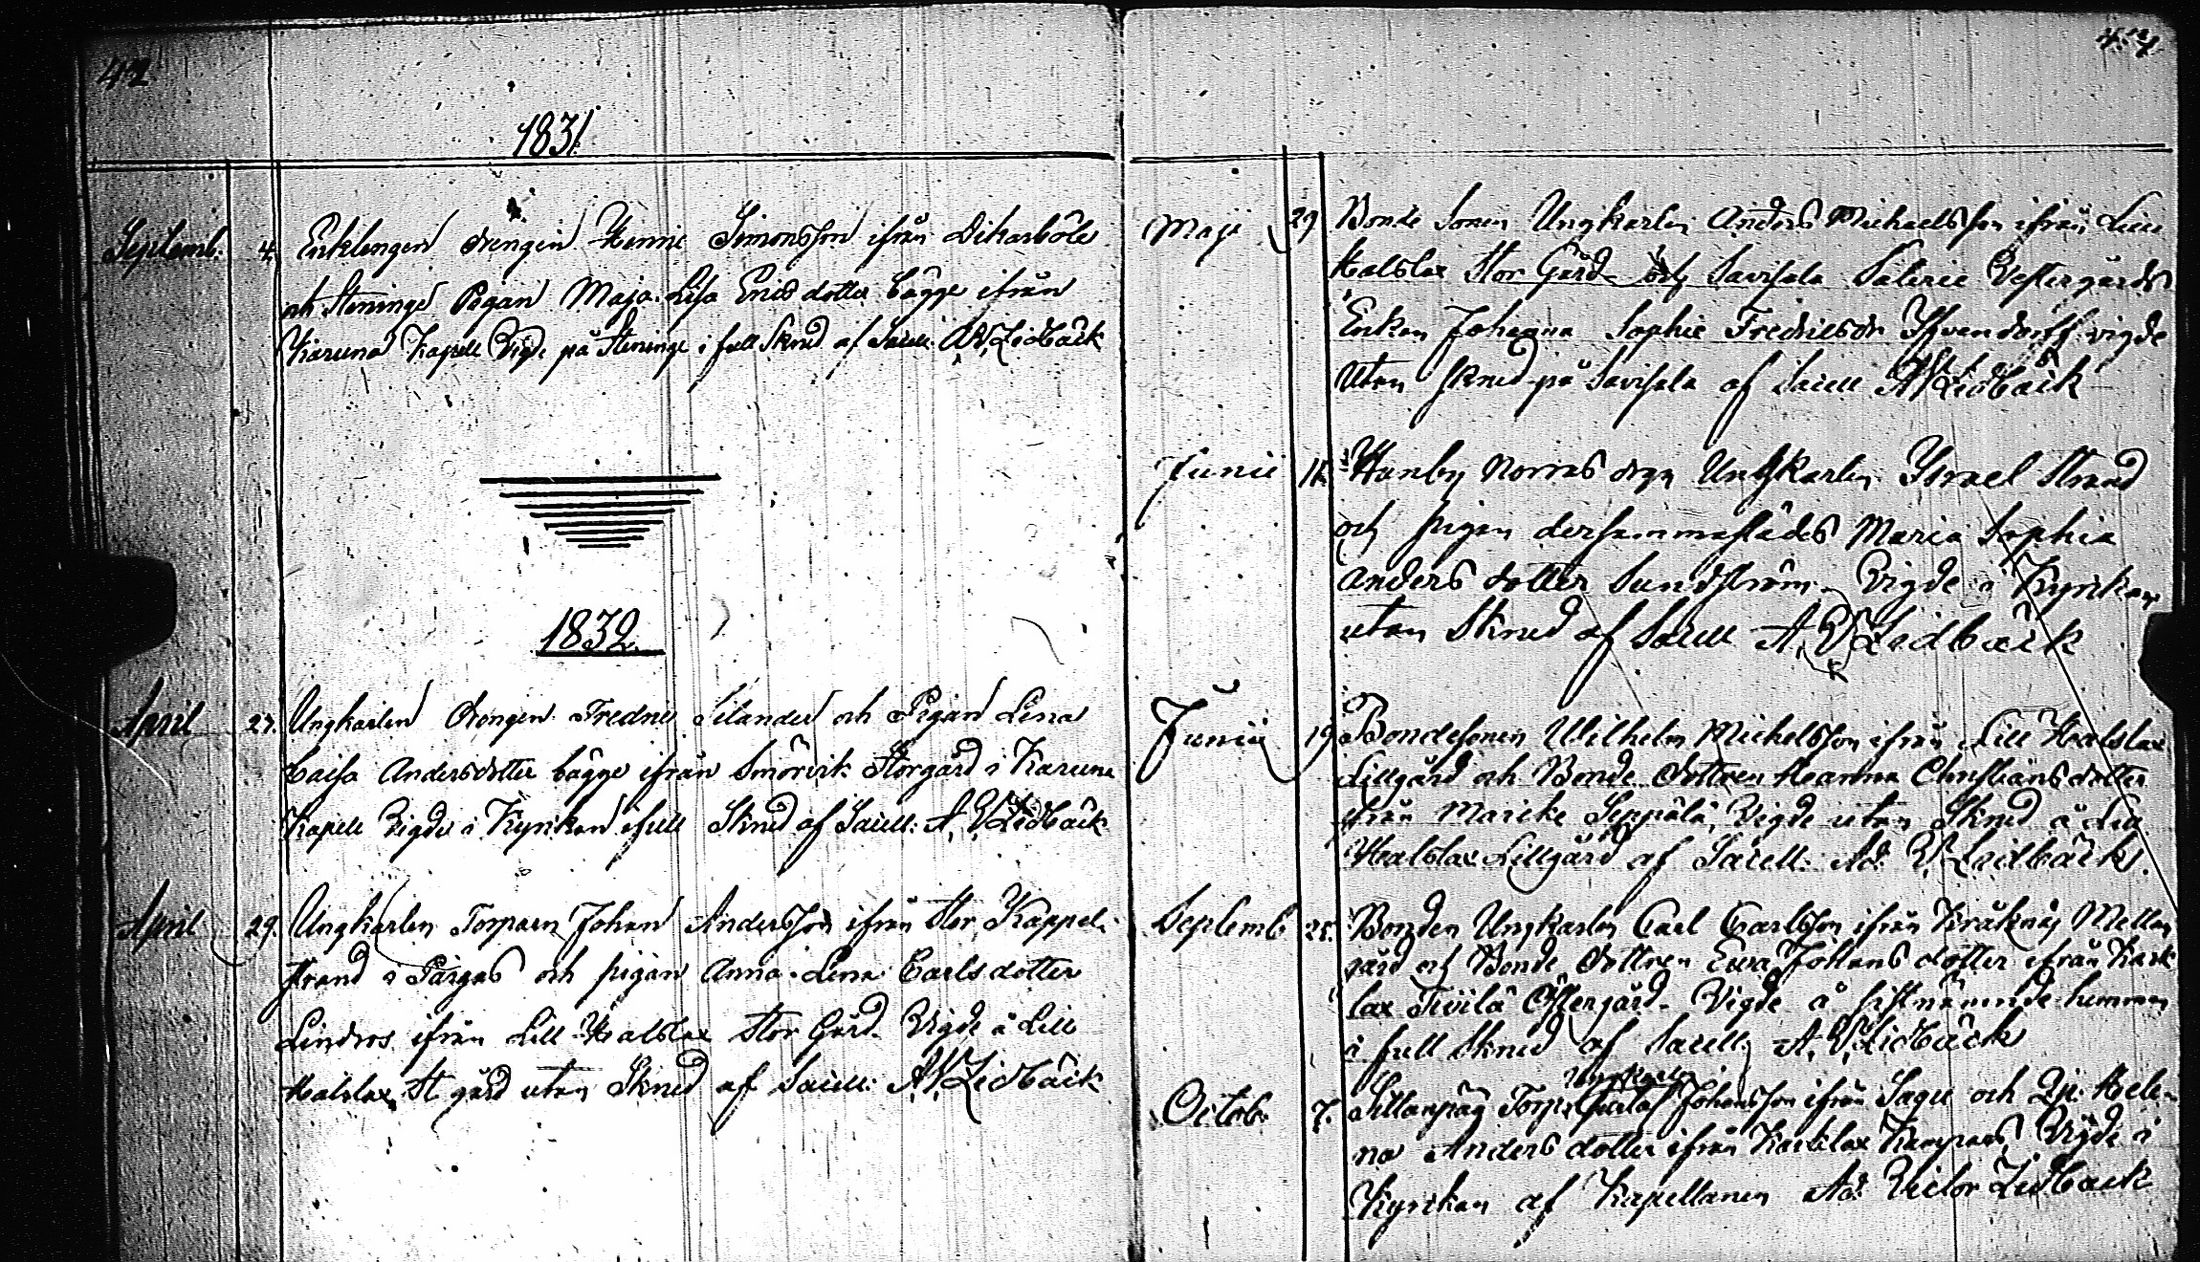 42
1831.
Septemb. 4. Enklingen drengen Henric Simonsson ifrån Dikarböle
och Steninge Pigan Maja Lisa Ericsdotter bägge ifrån
Karuna Kapell Vigde på Steninge i full Skrud af Sacell: A V Lidbäck
1832.
April 27. Ungkarlen Drengen Fredric Selander och Pigan Lena
Caisa Andersdotter bägge ifrån Smörvik Storgård i Karuna
Kapell Vigde i Kyrkan i full Skrud af Sacell: A. V. Lidbäck
April 29. Ungkarlen Torparen Johan Andersson ifrån Stor Kappel
strand i Pargas och pigan Anna Lena Carlsdotter
Lindros ifrån Lill Halslax Stor Gård Vigde å Lill
Halslax St gård utan Skrud af Sacell: A. V. Lidbäck
Maji 29 Bonde Sonen Ungkarlen Anders Michaelsson ifrån Lill
Halslax Stor Gård och Savisala Vestergårds
Enkan Johanna Sophie Fredricsdr vigde
utan skrud på Savisala af Sacell A V Lidbäck
Junii Norrns drgn Ungkarlen Israel Strand
och pigan dersammastädes Maria Sophia
Anders dotter Sundström. Vigde i Kyrkan
utan Skrud af Sacell A. V. Lidbäck
Junii 19 Bondesonen Wilhelm Michelsson ifrån Lill Halslax
Lillgård och Bonde Dottren Hanna Christiansdotter
ifrån Seppälä, Vigde utan Skrud å Lill
Halslax Lillgård af Sacell: Ad. V. Lidbäck.
Septemb 25. Bonden Ungkarlen Carl Carlsson ifrån Kräknäs Mellan
gård och Bonde Dottren Eva Johansdotter ifrån Kark
lax Tivilä Östergård. Vigde å sistnämnde hemman
i full Skrud af Sacell: A. V. Lidbäck
Ungkarln
Octob: 7. Torp. Gustaf Johansson ifrån Sagu och Pig. Hele-
na Anders dotter ifrån Karklax Vigde i
Kyrkan af Kapellanen Ad: Victor Lidback